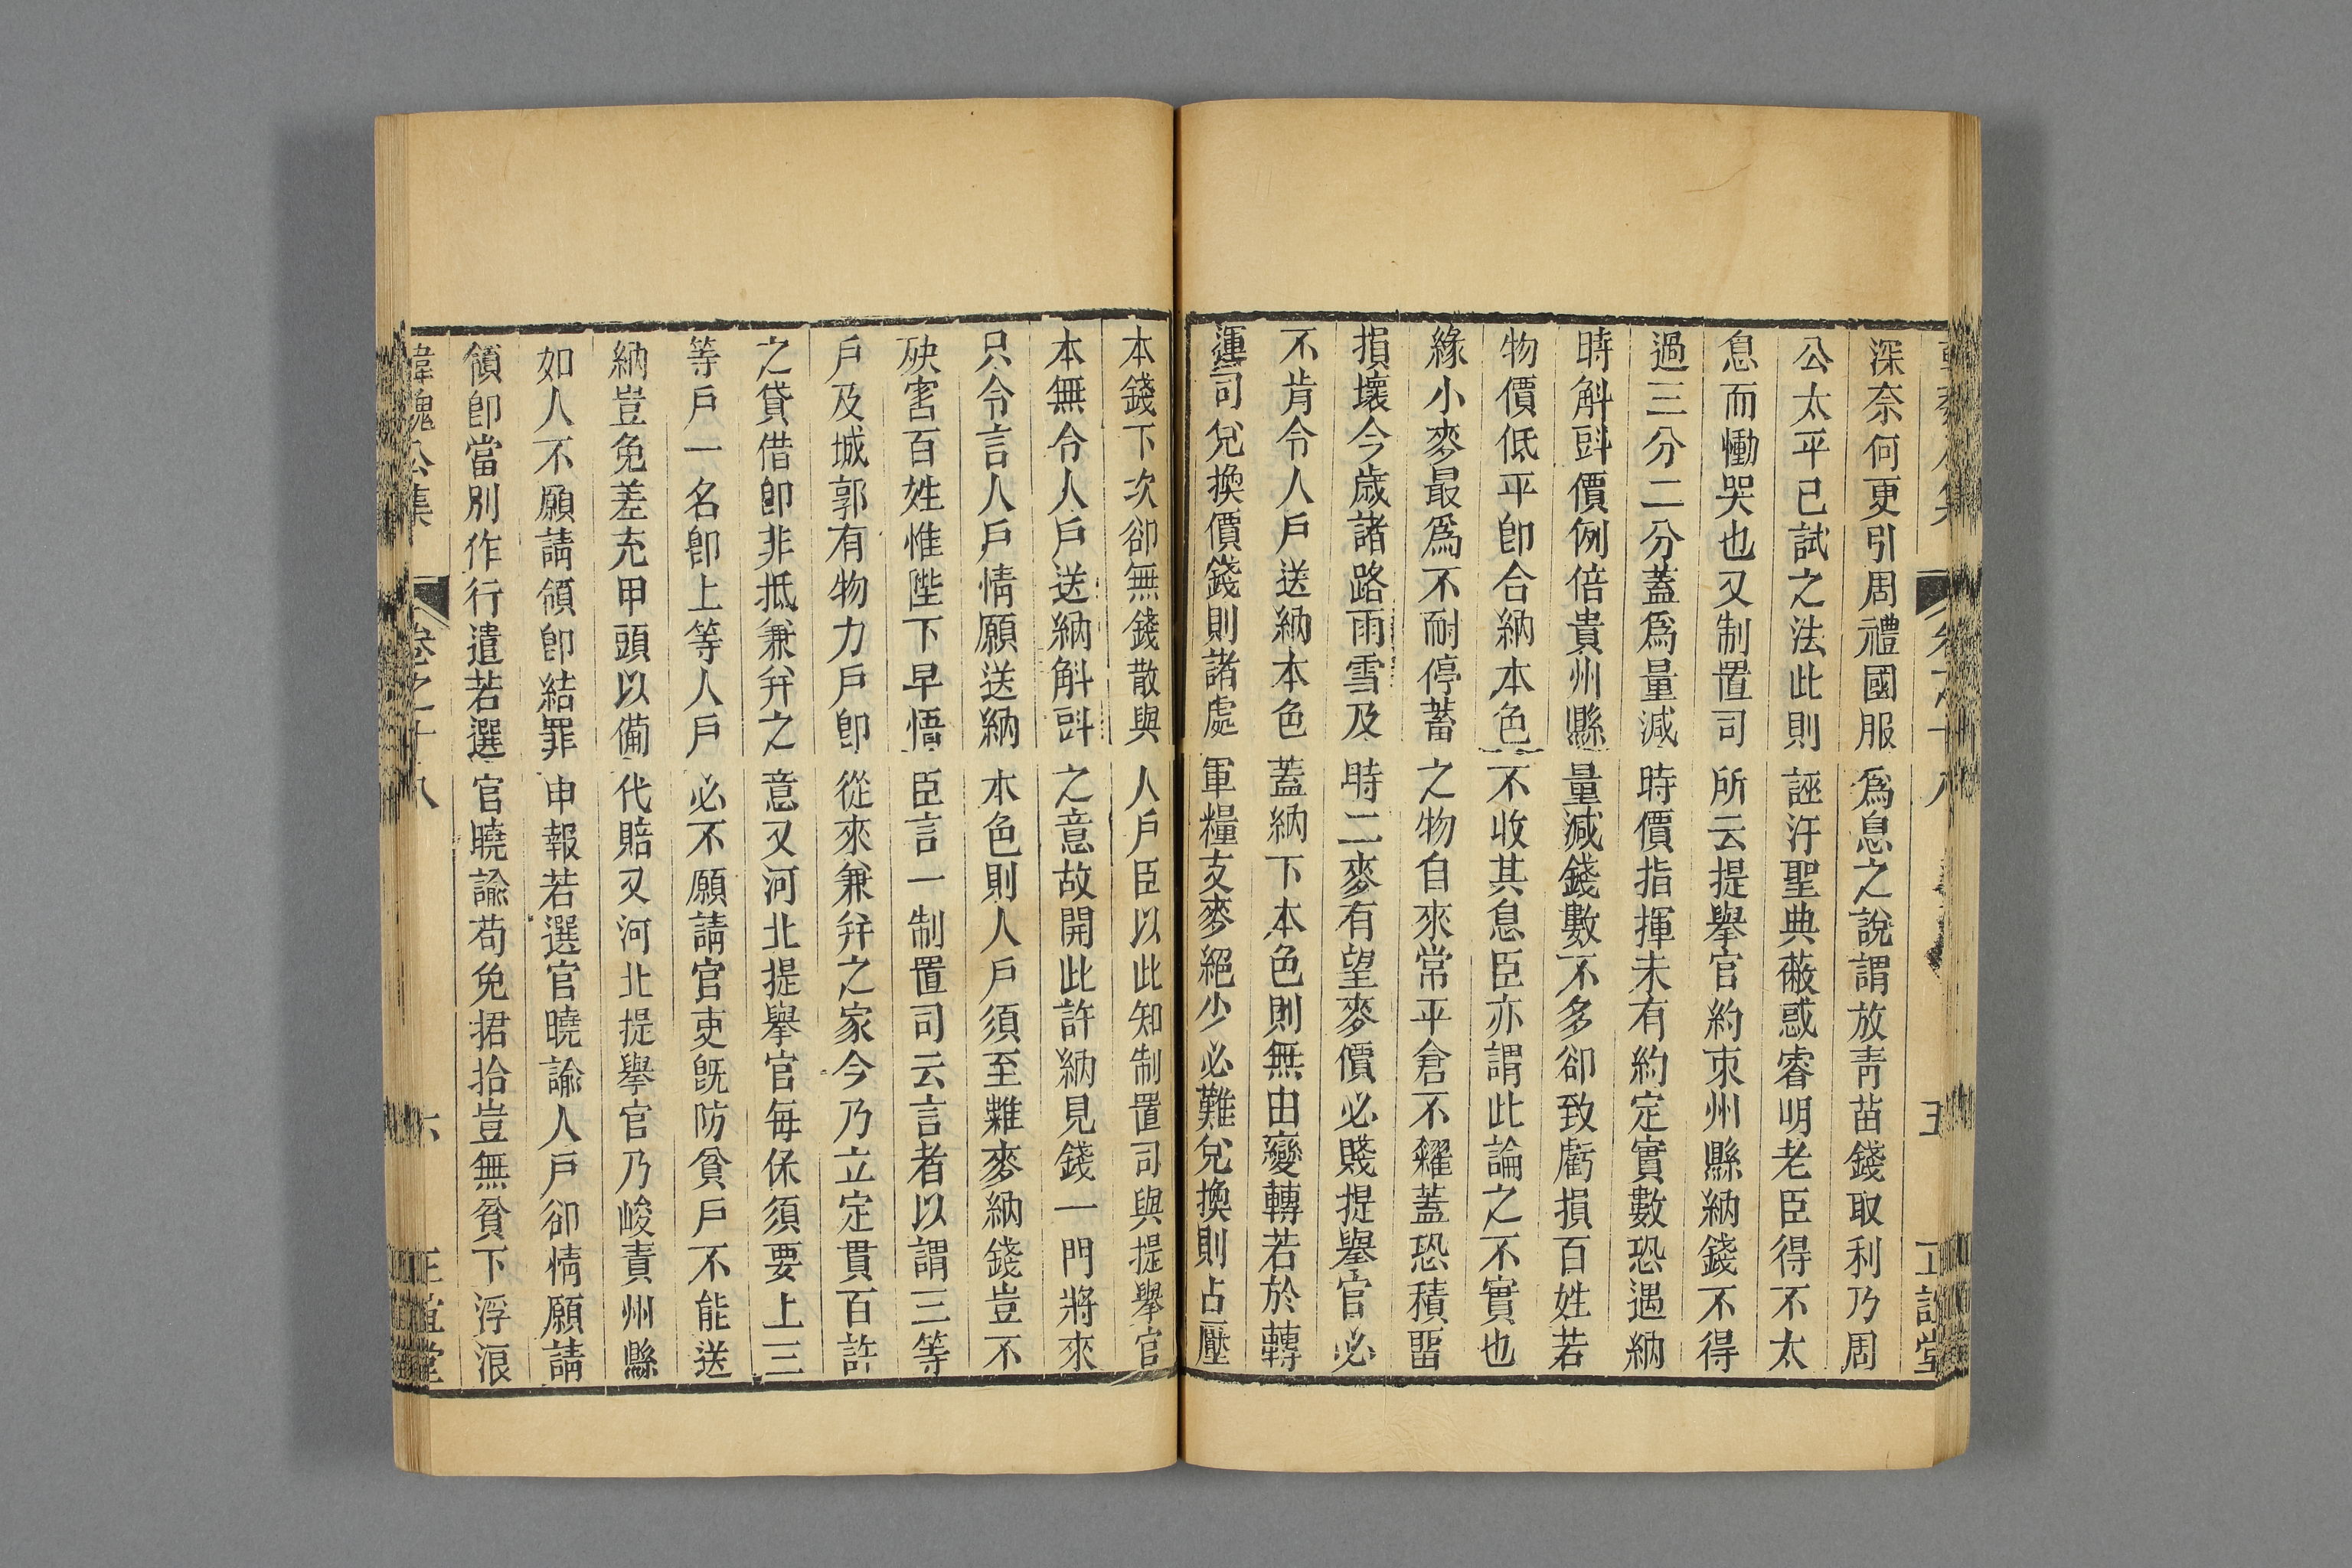 深奈何更引周禮國服爲息之說謂放青苗錢取利乃周
公太平已試之法此則誣汙聖典蔽惑睿明老臣得不太
息而慟哭也又制置司所云提舉官約束州縣納錢不得
過三分二分蓋爲量減時價指揮未有約定實數恐遇納
時斛㪷價例倍貴州縣量減錢數不多卻致虧損百姓若
物價低平卽合納本色不收其息臣亦謂此論之不實也
緣小麥最爲不耐停蓄之物自來常平倉不糴蓋恐積畱
損壞今歲諸路雨雪及時二麥有望麥價必賤提舉官必
不肯令人戶送納本色蓋納下本色則無由變轉若於轉
運司兌換價錢則諸處軍糧支麥絕少必難兌換則占壓
本錢下次卻無錢散與人戶臣以此知制置司與提舉官
本無令人戶送納斛㪷之意故開此許納見錢一門將來
只令言人戶情願送納本色則人戶須至糶麥納錢豈不
殃害百姓惟陛下早悟臣言一制置司云言者以謂三等
戶及城郭有物力戶卽從來兼幷之家今乃立定貫百許
之貸借卽非抵兼幷之意又河北提舉官每保須要上三
等戶一名卽上等人戶必不願請官吏旣防貧戶不能送
納豈免差充甲頭以備代賠又河北提舉官乃峻責州縣
如人不願請領卽結罪申報若選官曉諭人戶卻情願請
領卽當別作行遣若選官曉諭苟免捃拾豈無貧下浮浪
韓魏公集
卷之十八
六
正誼堂